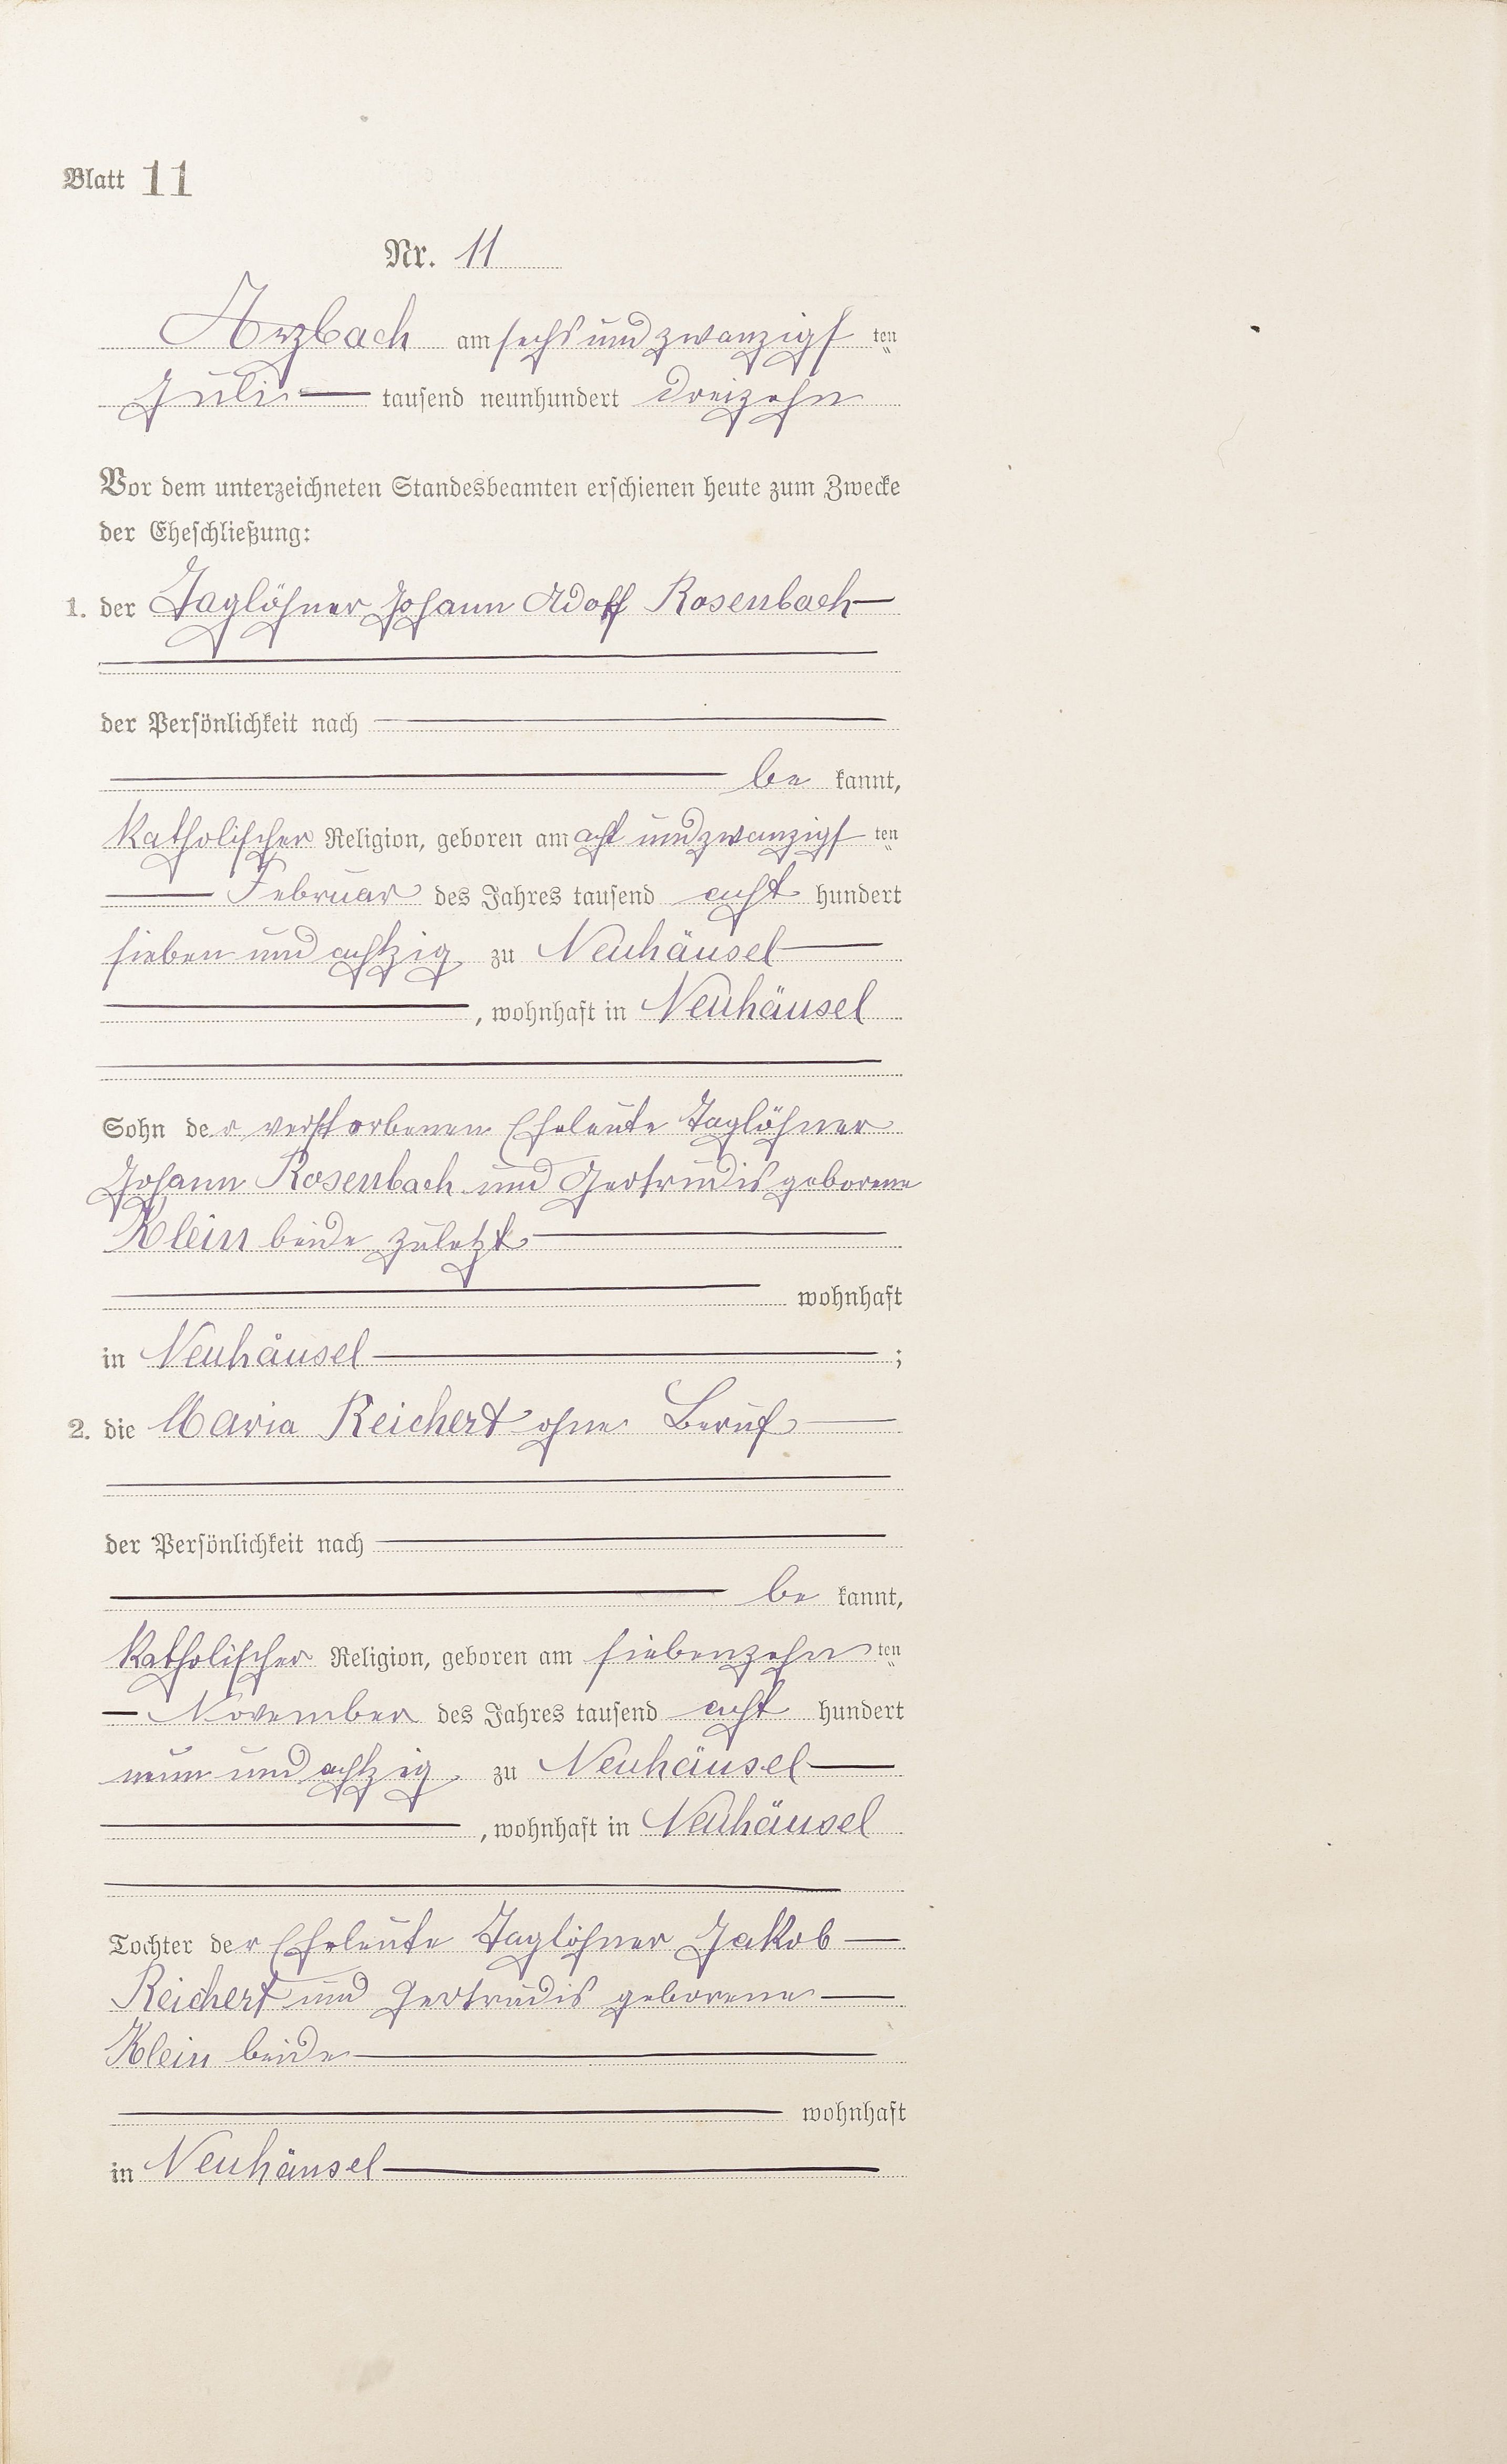 Blatt 11
Nr. 11
Arzbach am sechs und zwanzigsten
Juli tausend neunhundert dreizehn
Vor dem unterzeichneten Standesbeamten erschienen heute zum Zwecke
der Eheschließung:
1. der Taglöhner Johann Adolf Rosenbach
der Persönlichkeit nach
be kannt,
Katholischer Religion, geboren am acht und zwanzigsten
Februar des Jahres tausend acht hundert
sieben und achtzig zu Neuhäusel
, wohnhaft in Neuhäusel
Sohn der verstorbenen Eheleute Taglöhner
Johann Rosenbach und Gertrudis geborene
Klein beide zuletzt
wohnhaft
in Neuhäusel ;
2. die Maria Reichert ohne Beruf
der Persönlichkeit nach
be kannt,
Katholischer Religion, geboren am siebenzehnten
November des Jahres tausend acht hundert
neun und achtzig zu Neuhäusel
, wohnhaft in Neuhäusel
Tochter der Eheleute Taglöhner Jakob
Reichert und Gertrudis geborene
Klein beide
wohnhaft
in Neuhäusel